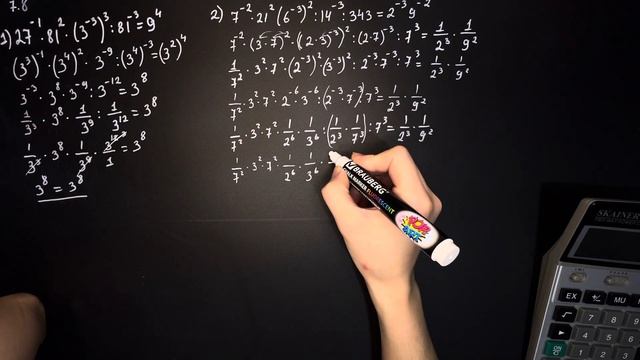 7.8
1) 27⁻¹ · 81² · (3⁻³)³ : 81⁻³ = 9⁴
(3³)⁻¹ · (3⁴)² · 3⁻⁹ : (3⁴)⁻³ = (3²)⁴
3⁻³ · 3⁸ · 3⁻⁹ : 3⁻¹² = 3⁸
1/3³ · 3⁸ · 1/3⁹ : 1/3¹² = 3⁸
1/3³ · 3⁸ · 1/3⁹ · 3¹²/1 = 3⁸
3⁸ = 3⁸
2) 7⁻² · 21² (6⁻³)² : 14⁻³ : 343 = 2⁻³ 9⁻²
7⁻² · (3·7)² · (2·3)⁻³)² : (2·7)⁻³ : 7³ = 1/2³ · 1/9²
1/7² · 3² · 7² · (2⁻³)² (3⁻³)² : 2⁻³ · 7⁻³ : 7³ = 1/2³ · 1/9²
1/7² · 3² · 7² · 2⁻⁶ · 3⁻⁶ : (2⁻³ · 7⁻³) : 7³ = 1/2³ · 1/9²
1/7² · 3² · 7² · 1/2⁶ · 1/3⁶ : (1/2³ · 1/7³) : 7³ = 1/2³ · 1/9²
1/7² · 3² · 7² · 1/2⁶ · 1/3⁶ ·
BRAUBERG
FLUORESCENT
POP
ART
EX
+/-
MU
√
7
8
9
4
5
ON